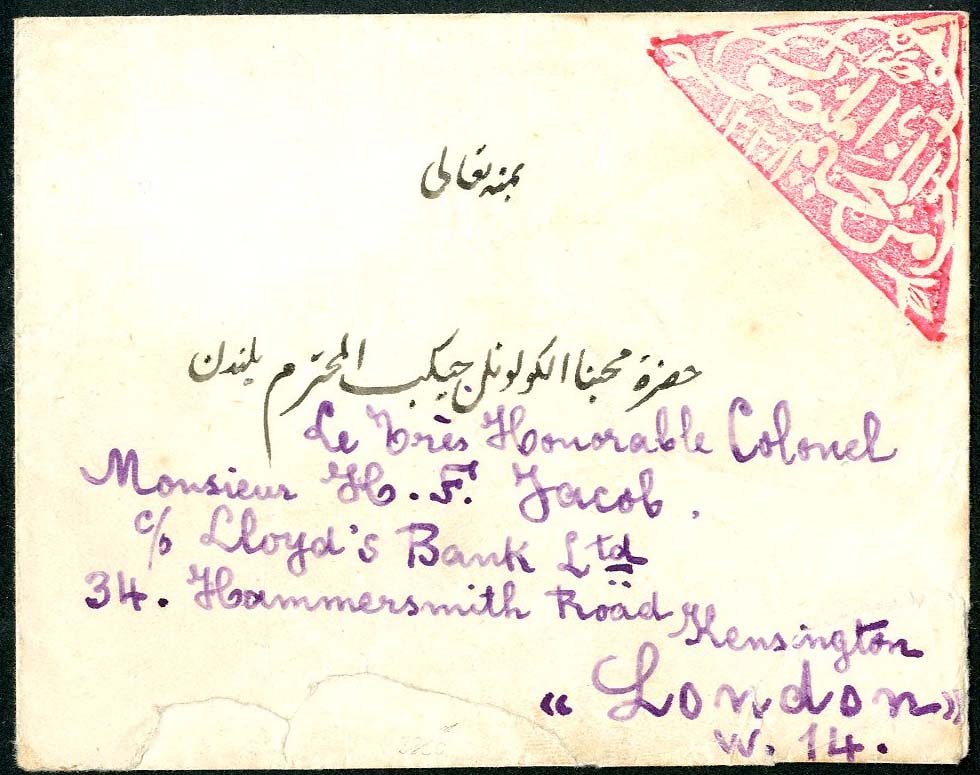 بمنه تعالى
حضرة محبنا الكولونل جيكب المحترم بلندن
Le Très Honorable Colonel
Monsieur H. F. Jacob.
c/o Lloyd's Bank Ltd
34. Hammersmith Road
Kensington
« London »
W. 14.